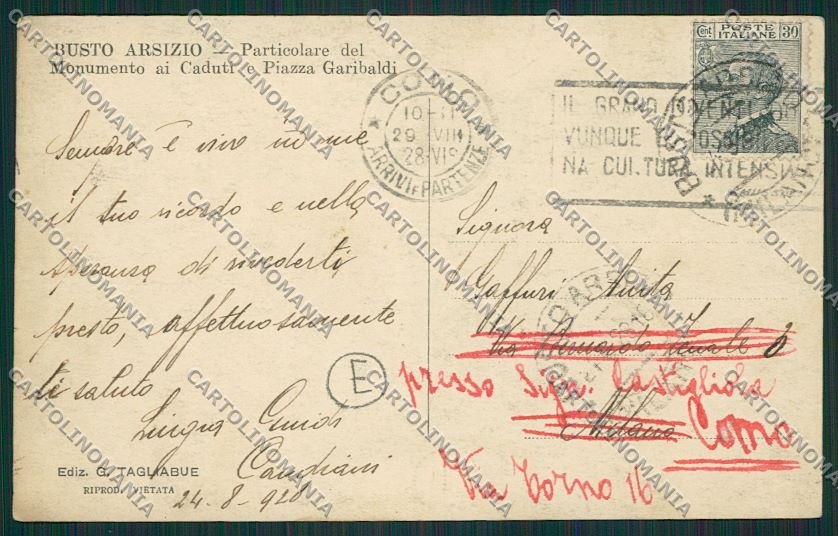 BUSTO ARSIZIO - Particolare del
Monumento ai Caduti e Piazza Garibaldi
COMO
10-11
29 VIII
28·VI
ARRIVI E PARTENZE
POSTE ITALIANE
Cent. 30
IL GRANO
VUNQUE
NA CULTURA INTENSIVA
Sempre è vivo in me
il tuo ricordo e nella
speranza di rivederti
presto, affettuosamente
ti saluto
Guidi
24-8-928
E
Signora
Gaffuri
Via Bernardo
Milano
presso Sig.ra Castigliola
Como
Via Torno 16
Ediz. G. TAGLIABUE
RIPROD. VIETATA
CARTOLINOMANIA